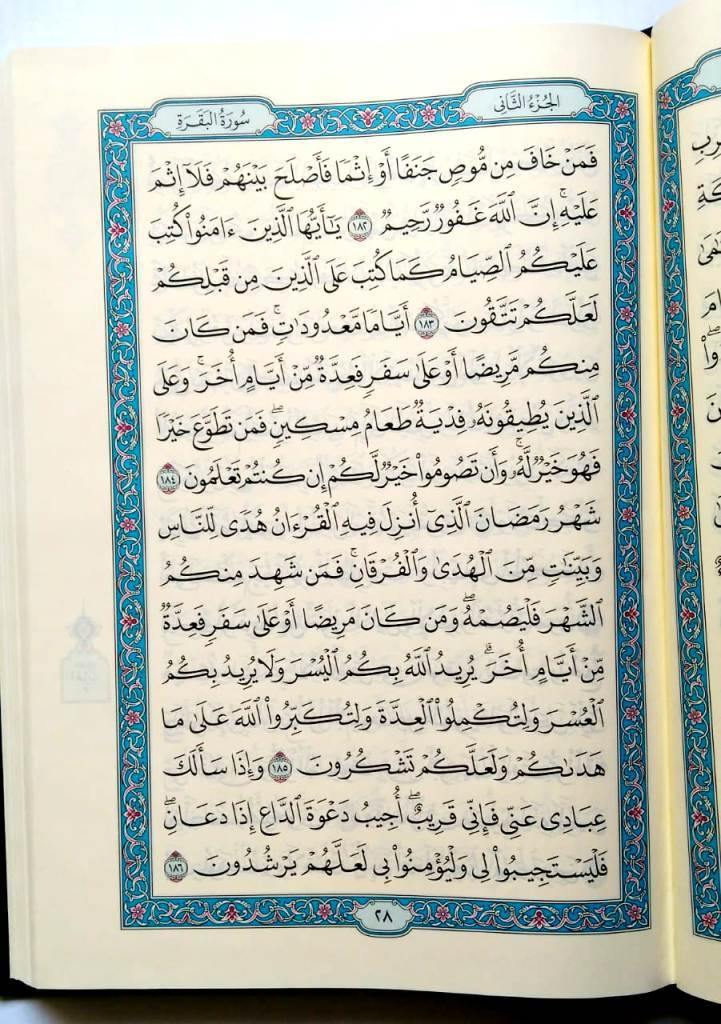 الجُزْءُ الثَّانِي
سُورَةُ البَقَرَةِ
فَمَنْ خَافَ مِن مُّوصٍ جَنَفًا أَوْ إِثْمًا فَأَصْلَحَ بَيْنَهُمْ فَلَآ إِثْمَ
عَلَيْهِۚ إِنَّ ٱللَّهَ غَفُورٌ رَّحِيمٌ ١٨٢ يَٰٓأَيُّهَا ٱلَّذِينَ ءَامَنُوا۟ كُتِبَ
عَلَيْكُمُ ٱلصِّيَامُ كَمَا كُتِبَ عَلَى ٱلَّذِينَ مِن قَبْلِكُمْ
لَعَلَّكُمْ تَتَّقُونَ ١٨٣ أَيَّامًا مَّعْدُودَٰتٍۚ فَمَن كَانَ
مِنكُم مَّرِيضًا أَوْ عَلَىٰ سَفَرٍ فَعِدَّةٌ مِّنْ أَيَّامٍ أُخَرَۚ وَعَلَى
ٱلَّذِينَ يُطِيقُونَهُۥ فِدْيَةٌ طَعَامُ مِسْكِينٍۖ فَمَن تَطَوَّعَ خَيْرًا
فَهُوَ خَيْرٌ لَّهُۥۚ وَأَن تَصُومُوا۟ خَيْرٌ لَّكُمْ إِن كُنتُمْ تَعْلَمُونَ ١٨٤
شَهْرُ رَمَضَانَ ٱلَّذِىٓ أُنزِلَ فِيهِ ٱلْقُرْءَانُ هُدًى لِّلنَّاسِ
وَبَيِّنَٰتٍ مِّنَ ٱلْهُدَىٰ وَٱلْفُرْقَانِۚ فَمَن شَهِدَ مِنكُمُ
ٱلشَّهْرَ فَلْيَصُمْهُۖ وَمَن كَانَ مَرِيضًا أَوْ عَلَىٰ سَفَرٍ فَعِدَّةٌ
مِّنْ أَيَّامٍ أُخَرَۗ يُرِيدُ ٱللَّهُ بِكُمُ ٱلْيُسْرَ وَلَا يُرِيدُ بِكُمُ
ٱلْعُسْرَ وَلِتُكْمِلُوا۟ ٱلْعِدَّةَ وَلِتُكَبِّرُوا۟ ٱللَّهَ عَلَىٰ مَا
هَدَىٰكُمْ وَلَعَلَّكُمْ تَشْكُرُونَ ١٨٥ وَإِذَا سَأَلَكَ
عِبَادِى عَنِّى فَإِنِّى قَرِيبٌۖ أُجِيبُ دَعْوَةَ ٱلدَّاعِ إِذَا دَعَانِۖ
فَلْيَسْتَجِيبُوا۟ لِى وَلْيُؤْمِنُوا۟ بِى لَعَلَّهُمْ يَرْشُدُونَ ١٨٦
٢٨